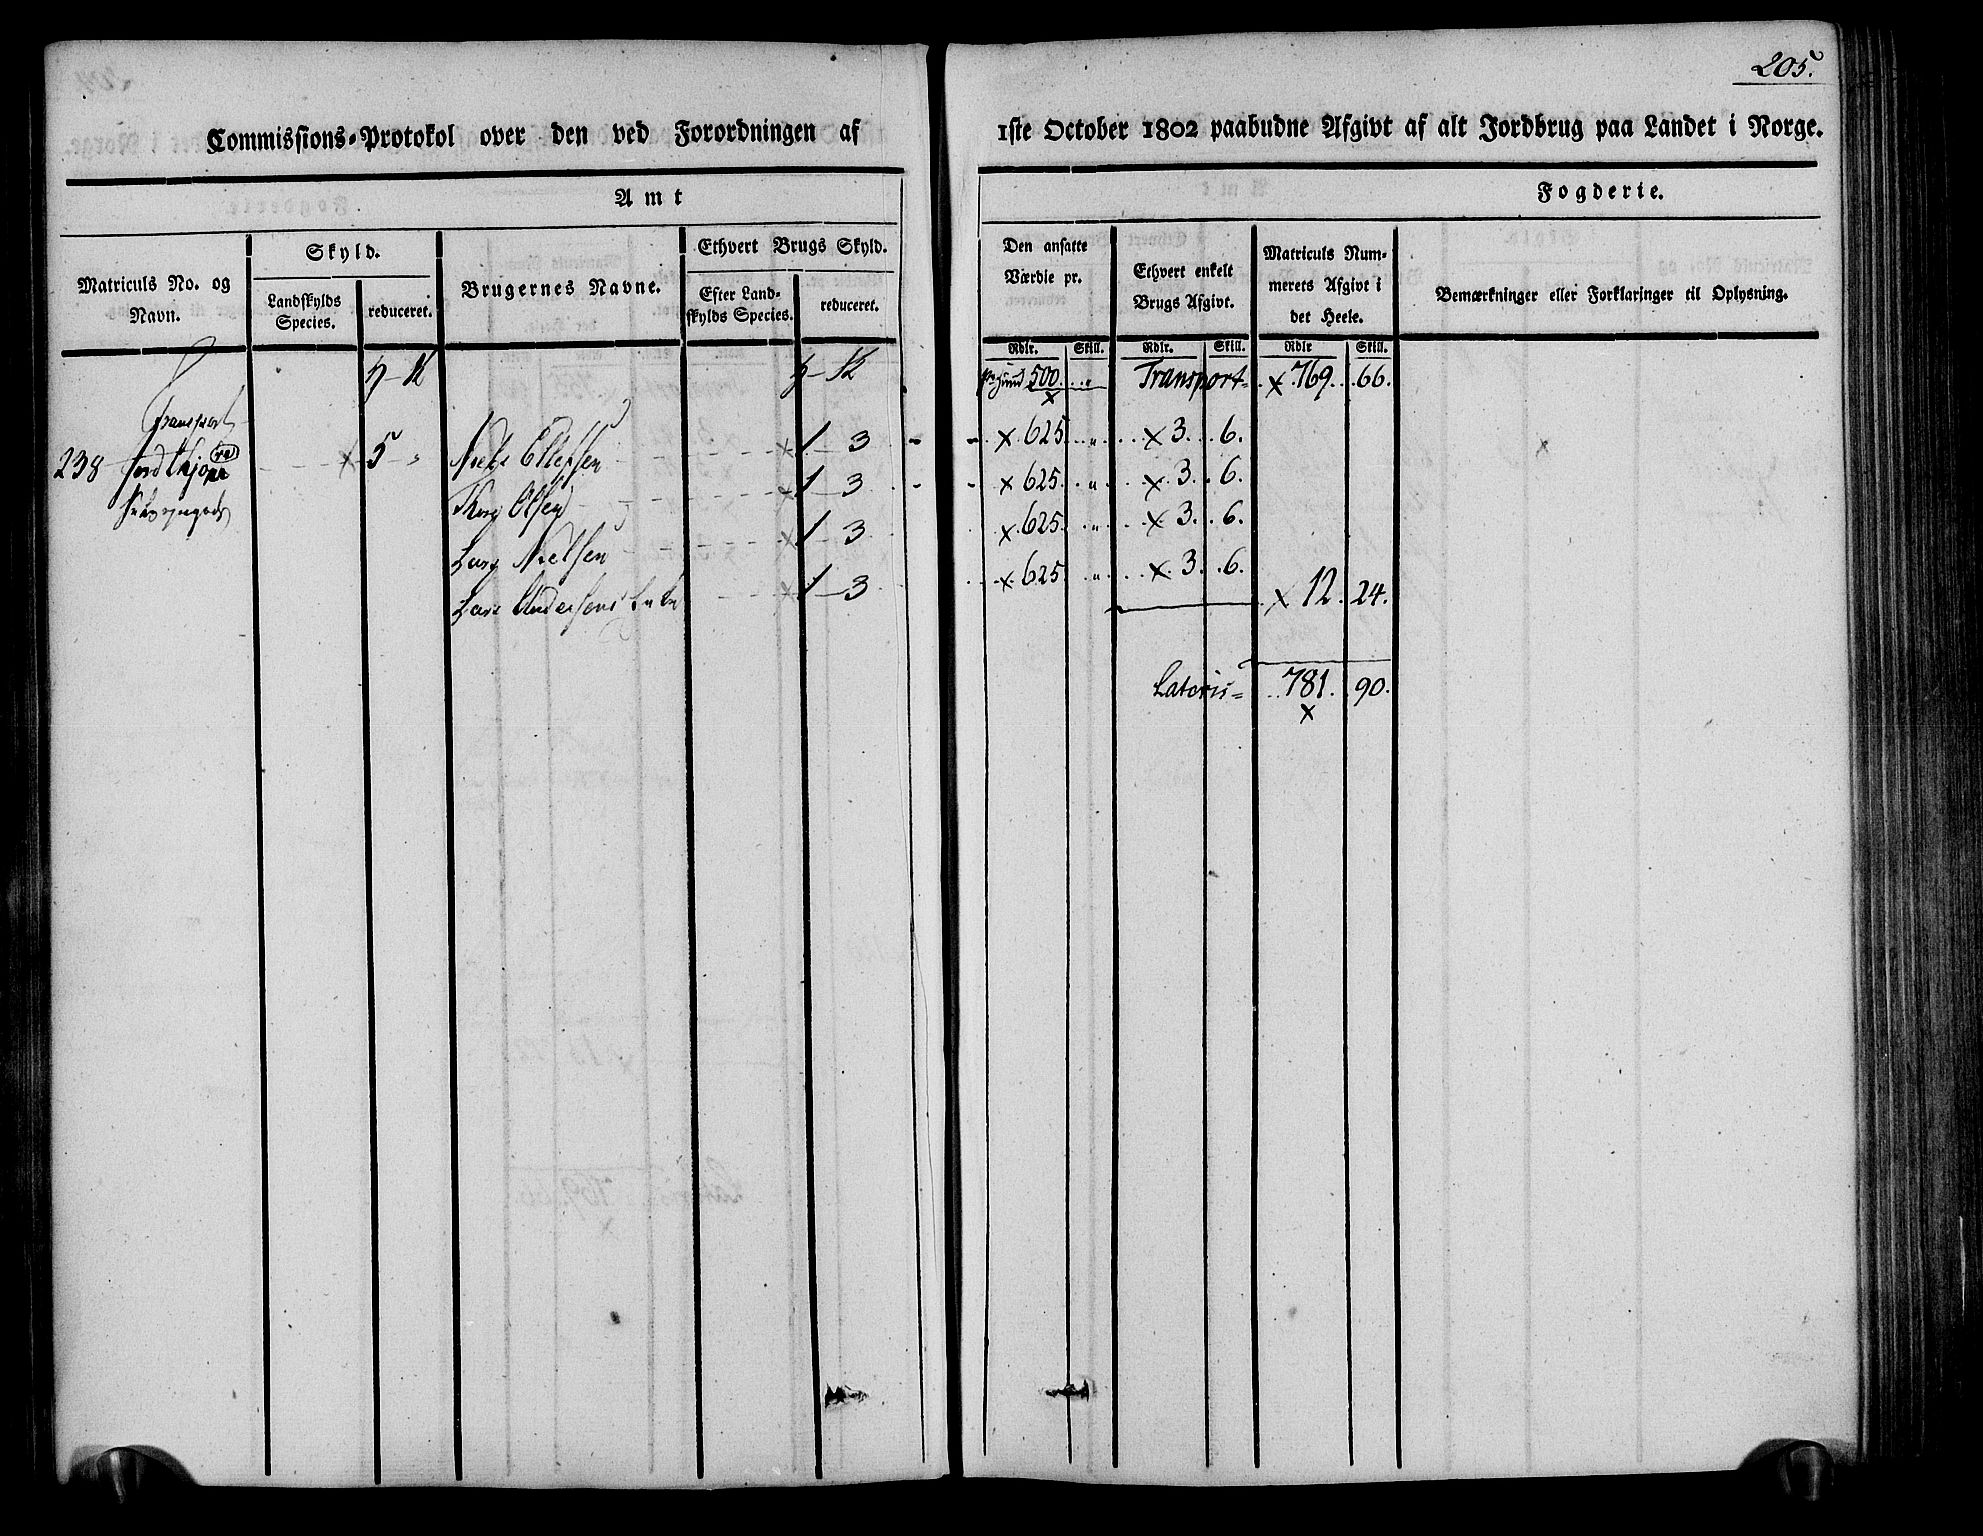 205.
Commissions-Protokol over den ved Forordningen af 1ste October 1802 paabudne Afgivt af alt Jordbrug paa Landet i Norge.
Amt Fogderie.
Matriculs No. og Navn.
Skyld.
Landskylds Species.
reduceret.
Brugernes Navne.
Ethvert Brugs Skyld.
Efter Landskylds Species.
reduceret.
Den ansatte Værdie pr.
Ethvert enkelt Brugs Afgivt.
Matriculs Nummerets Afgivt i det Heele.
Bemærkninger eller Forklaringer til Oplysning.
Rdlr. Skill. Rdlr. Skill. Rdlr Skill.
500 Transport x 769. 66.
Transport
238 x 5 Niels Ellefsen x 1 3 x 625 " x 3. 6.
Olsen x 1 3 x 625 " x 3. 6.
Lars Nielsen x 1 3 x 625 " x 3. 6.
Lars Andersens Enke x 1 3 x 625 " x 3. 6.
x 12. 24.
Lateris = 781. 90.
x